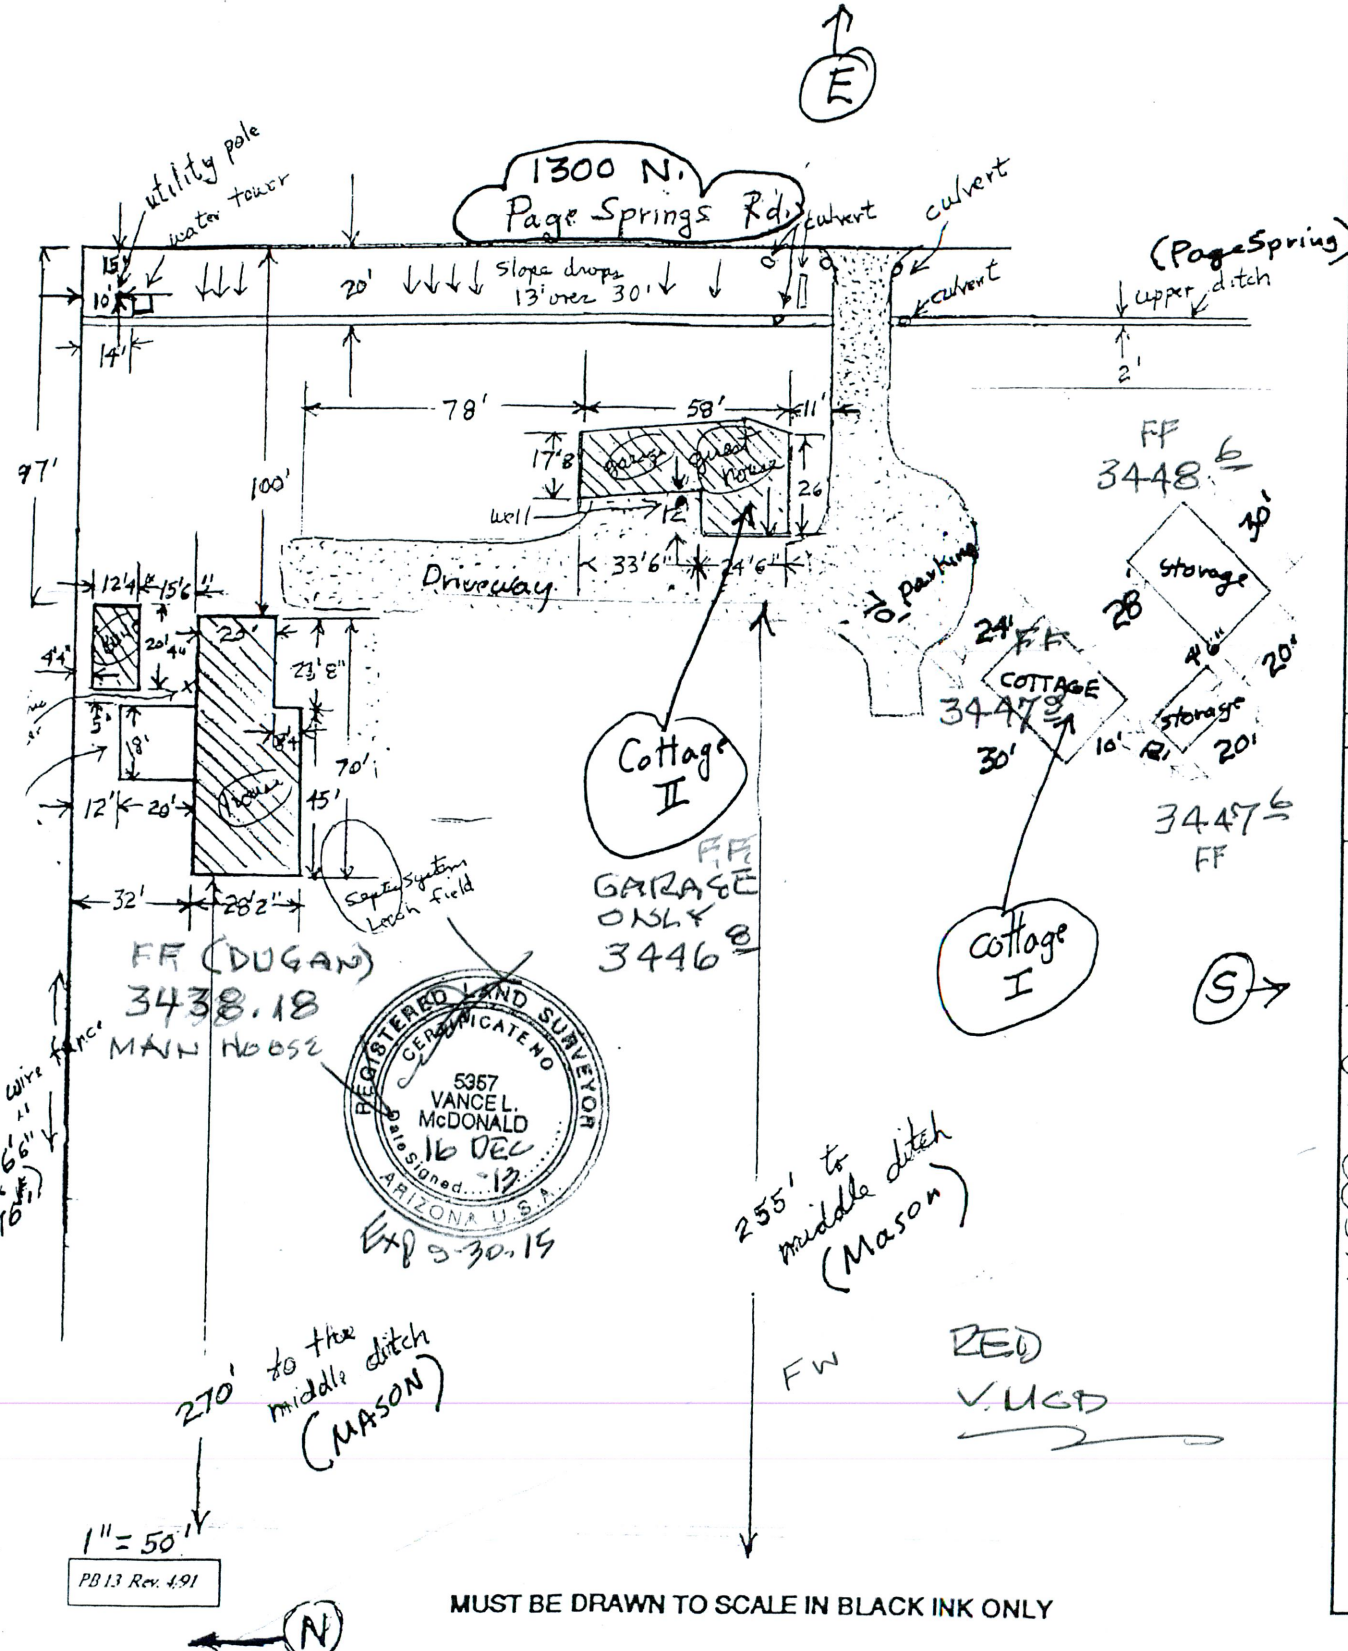 E
1300 N.
Page Springs Rd.
utility pole
water tower
culvert
culvert
culvert
(Page Spring)
upper ditch
15'
10'
14'
20'
slope drops
13' over 30'
2'
97'
100'
78'
58'
11'
17'8
garage
guest
house
26
well
12'
33'6"
24'6"
Driveway
parking
FF
3448 6
30'
storage
28'
4'6"
20'
storage
12'
20'
3447 6
FF
24'
FF
COTTAGE
3447 9
30'
10'
12'4"
15'6"
20'
4"
4'4"
5'
18'
12'
20'
23'
23'8"
8'4
70'
45'
house
32'
28'2"
Septic System
Leach field
Cottage
II
F.F.
GARAGE
ONLY
3446 8
Cottage
I
S
FF (DUGAN)
3438.18
MAIN HOUSE
wire fence
REGISTERED LAND SURVEYOR
CERTIFICATE NO
5357
VANCE L.
McDONALD
16 DEC
-13
Date Signed
ARIZONA U.S.A.
Exp 9-30-15
255' to
middle ditch
(Mason)
270' to the
middle ditch
(MASON)
FW
RED
V. MCD
1" = 50'
PB 13 Rev. 4/91
N
MUST BE DRAWN TO SCALE IN BLACK INK ONLY